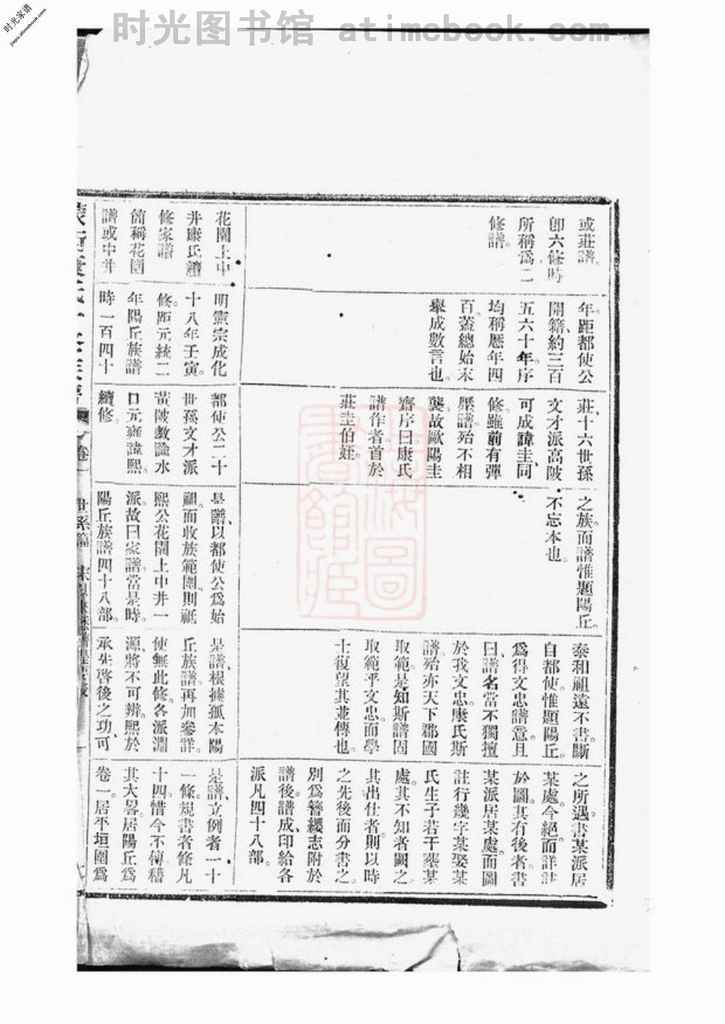 时光图书馆 atimebook.com
时光家谱
或莊譜
卽六條時
所稱爲二
修譜
年距都使公
開籍約三百
五六十年序
均稱歷年四
百葢總始末
舉成數言也
莊十六世孫
文才派高陂
可成諱圭同
修雖前有彈
壓譜殆不相
襲故歐陽圭
齋序曰康氏
譜作者首於
莊圭伯姪
之族而譜惟題陽丘
不忘本也
泰和祖遠不書斷
自都使惟題陽丘
爲得文忠譜意且
曰譜名當不獨擅
於我文忠康氏斯
譜殆亦天下郡國
取範是知斯譜固
取範乎文忠而學
士復望其並傳也
之所遇書某派居
某處今絕而詳註
於圖其有後者書
某派居某處而圖
註行幾字某娶某
氏生子若干塟某
處其不知者闕之
其出仕者則以時
之先後而分書之
別爲簪纓志附於
譜後譜成印給各
派凡四十八部
花園上中
井康氏續
修家譜
簡稱花園
譜或中井
明憲宗成化
十八年壬寅
修距元統二
年陽丘族譜
時一百四十
都使公二十
世孫文才派
黃陂數論水
口元雍諱熙
續修
是譜以都使公爲始
祖而收族範圍則祇
熙公花園上中井一
派故曰家譜當是時
陽丘族譜四十八部
是譜根據孤本陽
丘族譜再加參詳
使無此修各派淵
源將不可辨熙於
承先啓後之功可
是譜立例者一十
一條規書者修凡
十四惜今不傳稽
其大畧居陽丘爲
卷一居平垣圍爲
卷一 世系篇